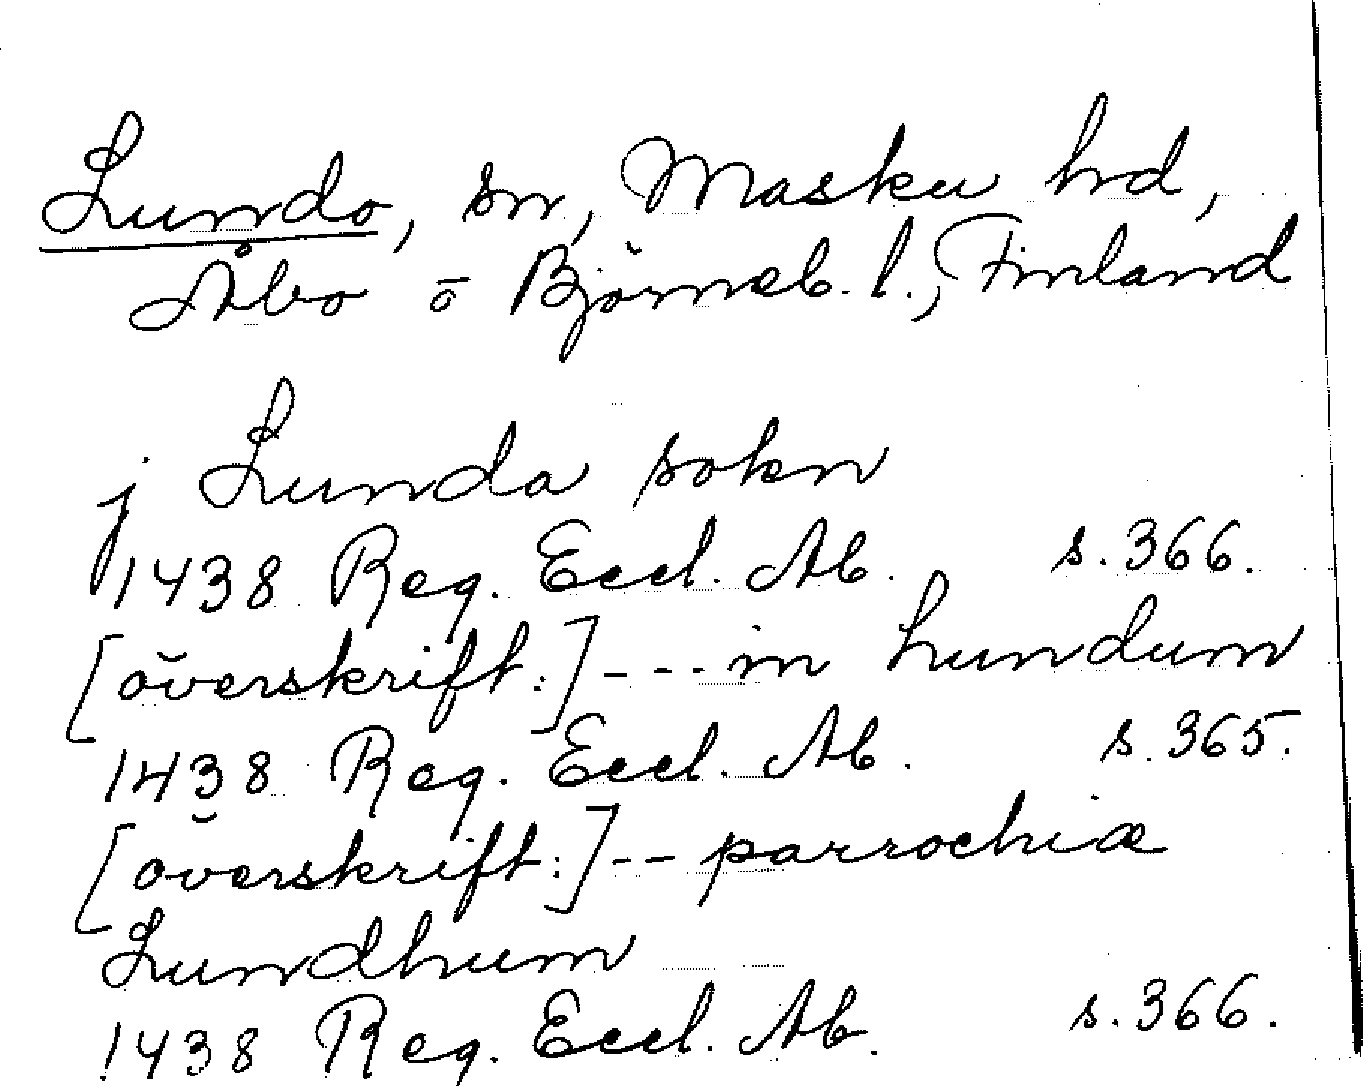 Lundo, sn, Masku hrd,
Åbo o Björneb. l., Finland
j Lunda sokn
1438 Reg. Eccl. Ab. s. 366.
[överskrift:] --- in lundum
1438 Reg. Eccl. Ab. s. 365.
[överskrift:] -- parrochiæ
Lundhum
1438 Reg. Eccl. Ab. s. 366.